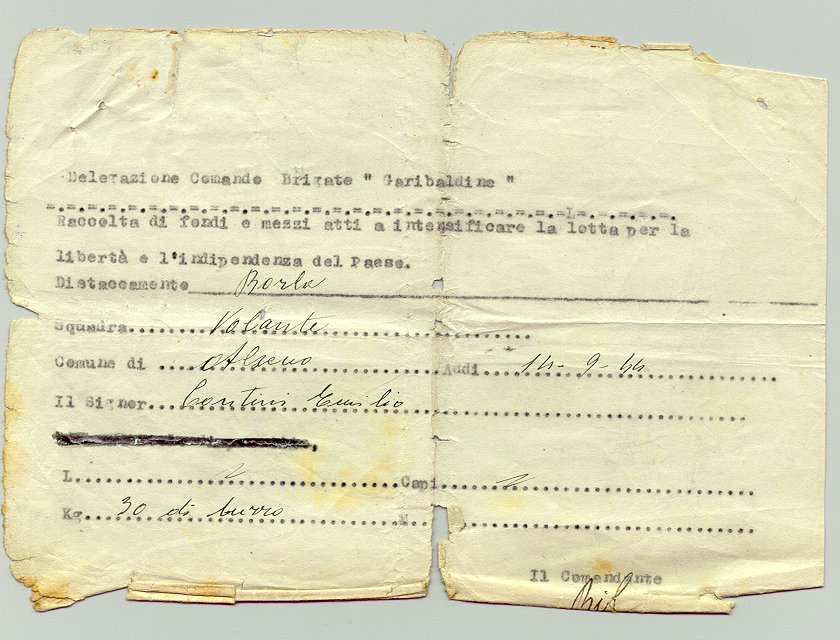 Delegazione Comando Brigate " Garibaldine "
-.-.-.-.-.-.-.-.-.-.-.-.-.-.-.-.-.-.-.-.-.-.-.-.-.-.-.-L-.-.-.-.
Raccolta di fondi e mezzi atti a intensificare la lotta per la
libertà e l'indipendenza del Paese.
Distaccamento Borla
Squadra....Volante....
Comune di ....Alseno....Addì....14-9-44....
Il Signor...Contini Emilio....
L........Capi........
Kg...30 di burro....N....
Il Comandante